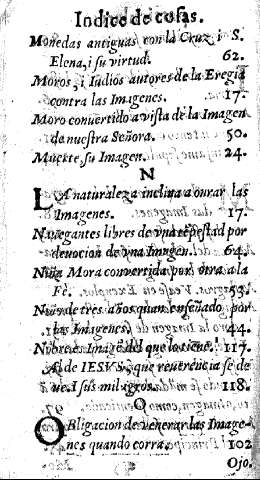 Indice de cosas.
Monedas antiguas con la Cruz i S.
Elena, i su virtud. 62.
Moros, i Iudios autores de la Eregia
contra las Imagenes. 17.
Moro convertido a vista de la Imagen
de nuestra Señora. 50.
Muerte, su Imagen. 24.
N
LA naturaleza inclina a onrar las
Imagenes. 17.
Navegantes libres de vna tẽpestad por
devocion de vna Imagen. 64.
Niña Mora convertida por otra a la
Fè. 53.
Niño de tres años quan enseñado por
las Imagenes. 44.
Nõbre es Imagẽ del que lo tiene. 117.
A de IESVS, que reverencia se de
ve. I sus milagros. 118.
O
OBligacion de venerar las Image-
nes quando corra. 102
Ojo.